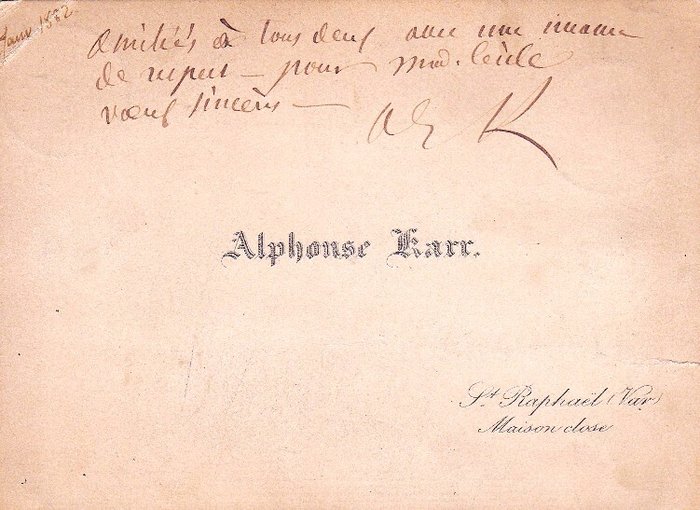 Janv 1882.
Amitiés à tous deux avec une nuance
de respect — pour Mad. Cécile
vœux sincères —
Alp K
Alphonse Karr.
St. Raphaël (Var)
Maison close